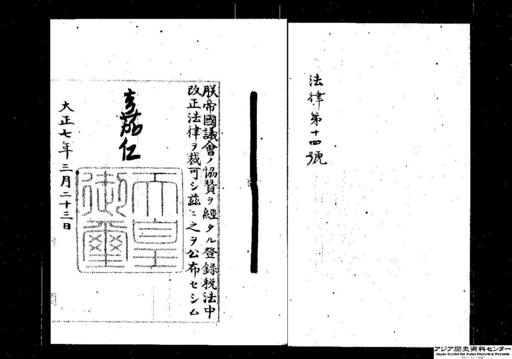 法律第十四號
朕帝國議會ノ協賛ヲ經タル登錄税法中
改正法律ヲ裁可シ茲ニ之ヲ公布セシム
嘉仁
天皇
御璽
大正七年三月二十三日
アジア歴史資料センター
Japan Center for Asian Historical Records